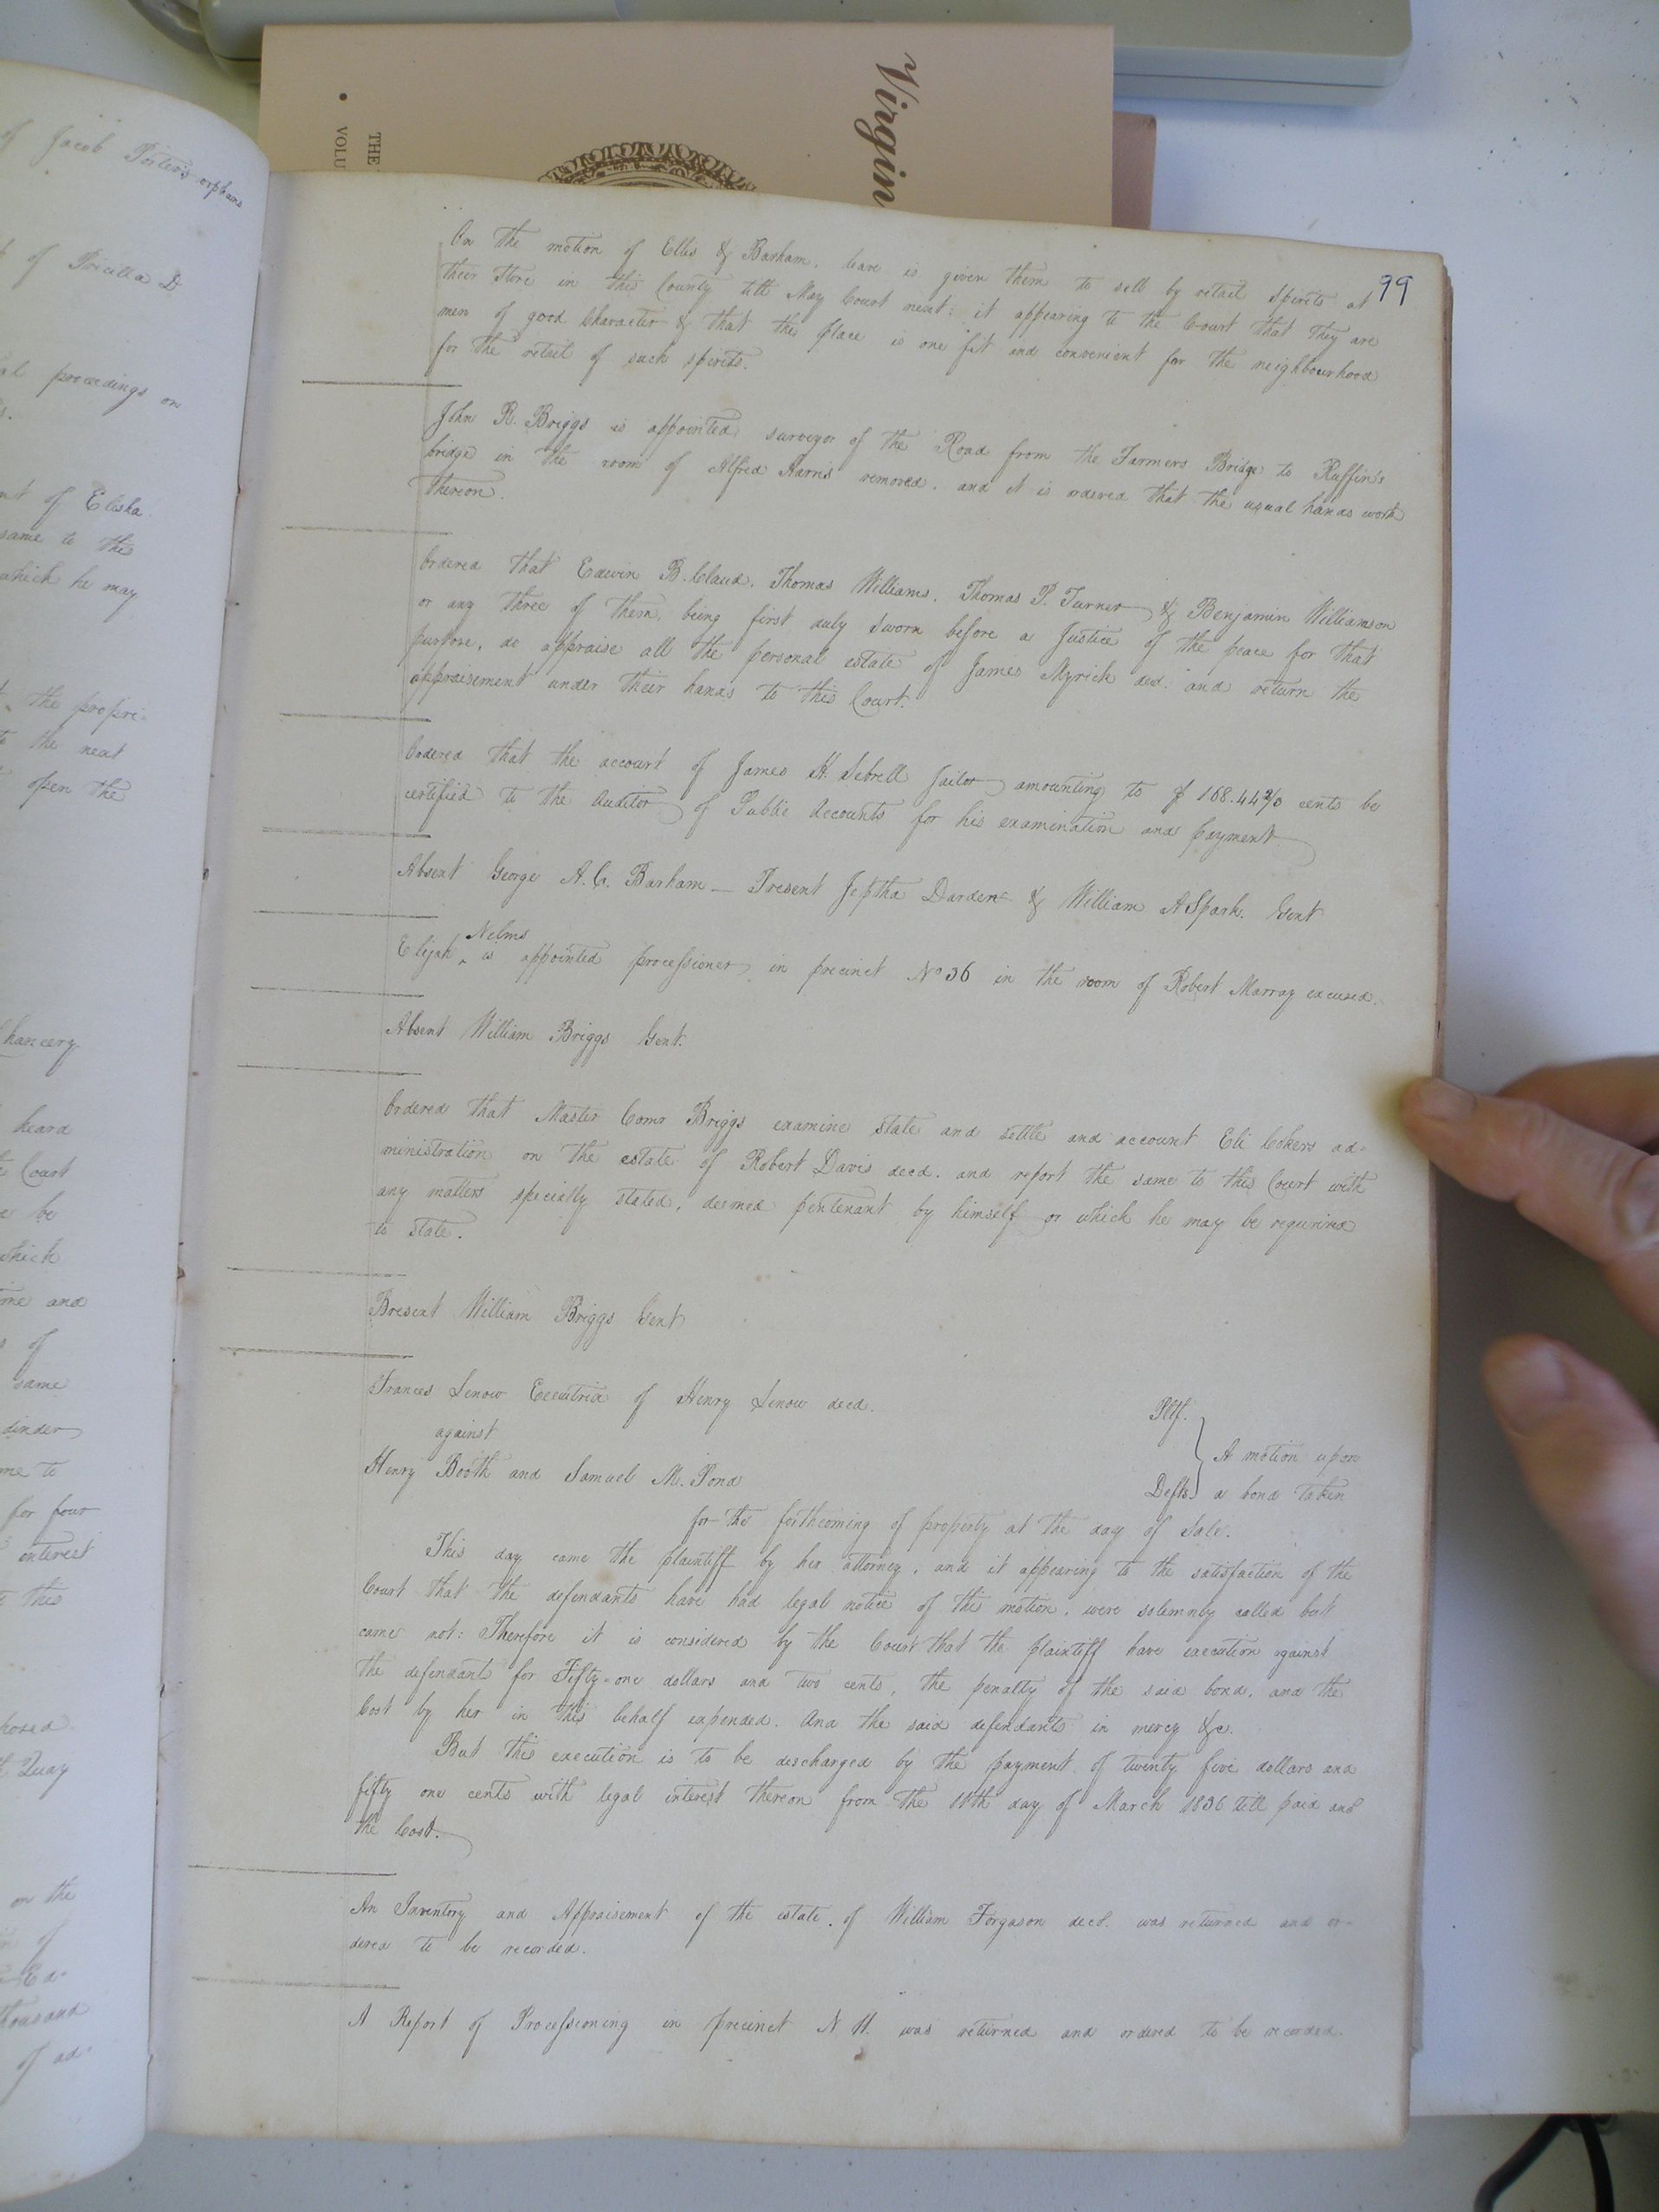 Virgin
THE
VOLU
of Jacob Porter's orphans
of Pricilla D
al proceedings on
nt of Elisha
same to this
which he may
the propri-
to the next
open the
Chancery
heard
Court
be
which
me and
of
same
me to
for four
interest
to this
Quay
on the
of
Ed-
thousand
of ad-
99
On the motion of Ellis & Barham, leave is given them to sell by retail spirits at
their Store in this County till May Court next: it appearing to the Court that they are
men of good Character & that the place is one fit and convenient for the neighbourhood
for the retail of such spirits.
John R. Briggs is appointed surveyor of the Road from the Farmers Bridge to Ruffin's
bridge in the room of Alfred Harris removed, and it is ordered that the usual hands work
thereon.
Ordered that Edwin B. Claud, Thomas Williams, Thomas P. Turner & Benjamin Williamson
or any three of them, being first duly sworn before a Justice of the peace for that
purpose, do appraise all the personal estate of James Myrick decd. and return the
appraisement under their hands to this Court.
Ordered that the account of James H. Sebrell Jailor amounting to $ 168.44 cents be
certified to the Auditor of Public Accounts for his examination and payment
Absent George A. C. Barham — Present Jeptha Darden & William A Spark. Gent
Nelms
Elijah ^ is appointed processioner in precinct No 36 in the room of Robert Murray excused.
Absent William Briggs Gent.
Ordered that Master Comr Briggs examine state and settle and account Eli Cokers ad-
ministration on the estate of Robert Davis decd. and report the same to this Court with
any matters specially stated, deemed pertenant by himself or which he may be required
to state.
Present William Briggs Gent
Frances Lenow Executrix of Henry Lenow decd. Pltf.
against
A motion upon
Henry Booth and Samuel M. Pond Defts. a bond taken
for the forthcoming of property at the day of Sale.
This day came the plaintiff by her attorney, and it appearing to the satisfaction of the
Court that the defendants have had legal notice of this motion, were solemnly called but
came not: Therefore it is considered by the Court that the plaintiff have execution against
the defendants for Fifty-one dollars and two cents, the penalty of the said bond, and the
Cost by her in this behalf expended. And the said defendants in mercy &c.
But this execution is to be discharged by the payment of twenty five dollars and
fifty one cents with legal interest thereon from the day of March 1836 till paid and
the Cost.
An Inventory and Appraisement of the estate of William Forgason decd. was returned and or-
dered to be recorded.
A Report of Processioning in precinct N 11. was returned and ordered to be recorded.